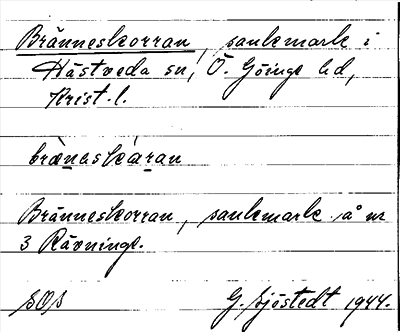 Bränneskorran, sankmark i
Hästveda sn, Ö. Göinge hd,
Krist. l.
bræ̀naskȧ́ran
Bränneskorran, sankmark å nr
3 Rävninge.
SOS G. Sjöstedt 1944.